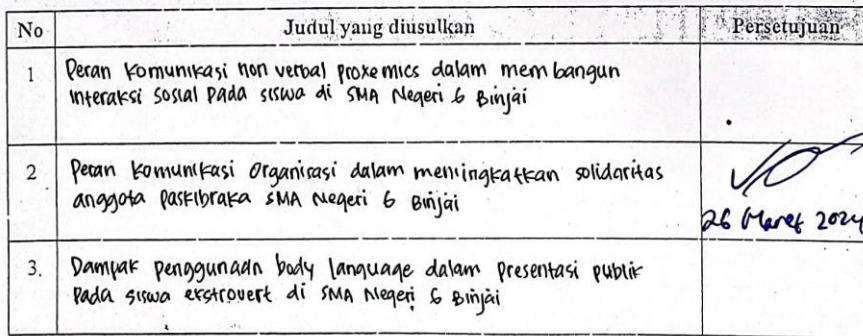 No Judul yang diusulkan Persetujuan
1 Peran komunikasi non verbal proxemics dalam membangun
interaksi sosial pada siswa di SMA Negeri 6 Binjai
2 Peran komunikasi organisasi dalam meningkatkan solidaritas
anggota paskibraka SMA Negeri 6 Binjai
26 Maret 2024
3. Dampak penggunaan body language dalam presentasi publik
pada siswa ekstrovert di SMA Negeri 6 Binjai